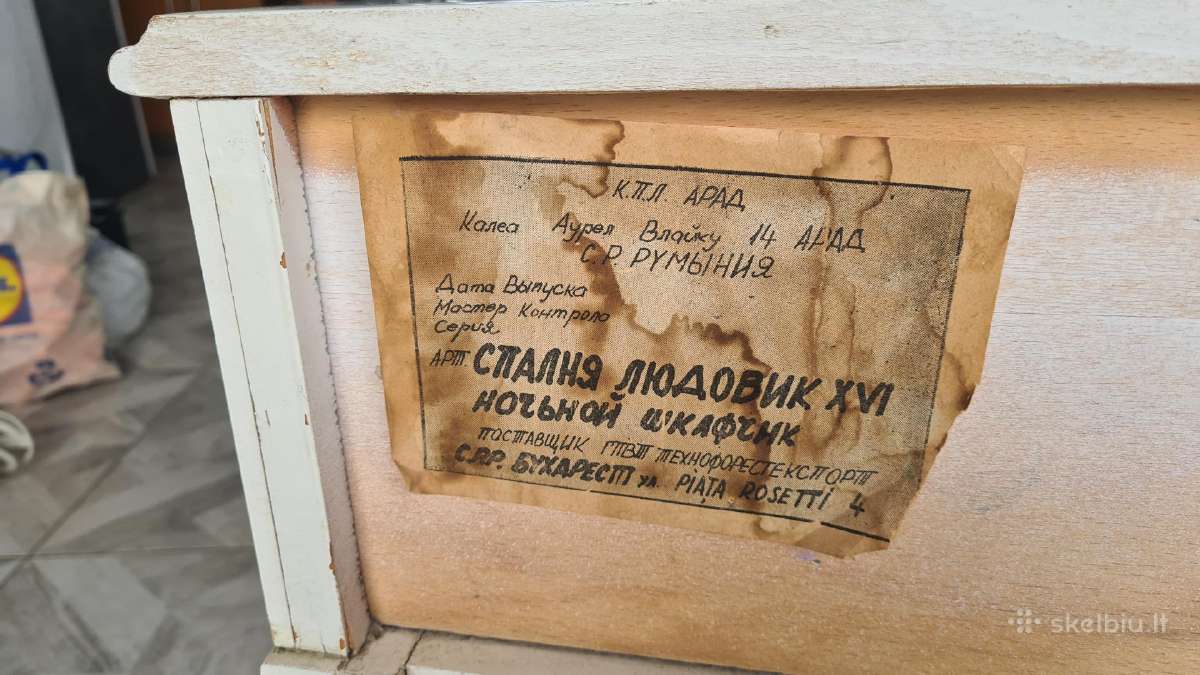 К.П.Л. АРАД
Калеа Аурел Влайку 14 АРАД
С.Р. РУМЫНИЯ
Дата Выпуска
Мастер Контрола
Серия
АРТ. СПАЛНЯ ЛЮДОВИК XVI
НОЧЬНОЙ ШКАФЧИК
ПОСТАВЩИК ГПВТ ТЕХНОФОРЕСТЕКСПОРТ
С.Р.Р. БУХАРЕСТ УЛ. PIAȚA ROSETTI 4
skelbiu.lt